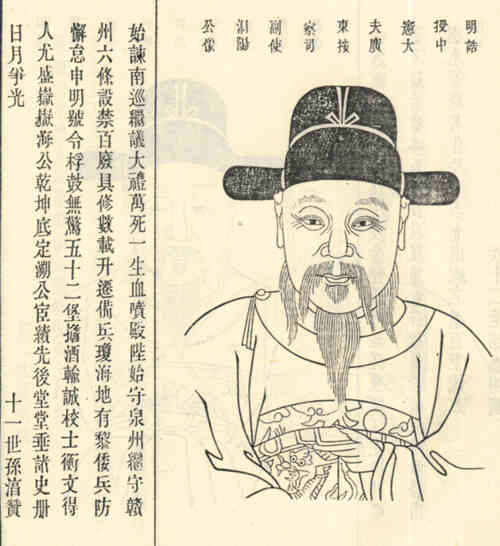 明誥
授中
憲大
夫廣
東按
察司
副使
洞陽
公像
始諫南巡繼議大禮萬死一生血噴殿陛始守泉州繼守贛
州六條設禁百廢具修數載升遷備兵瓊海地有黎倭兵防
懈怠申明號令桴鼓無驚五十二堡擔酒輸誠校士衡文得
人尤盛嶽嶽海公乾坤底定溯公宦績先後堂堂垂諸史册
日月爭光 十一世孫贊